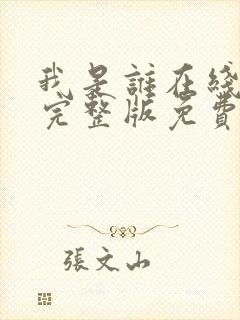 我是誰在綫
完整版免費
張文山